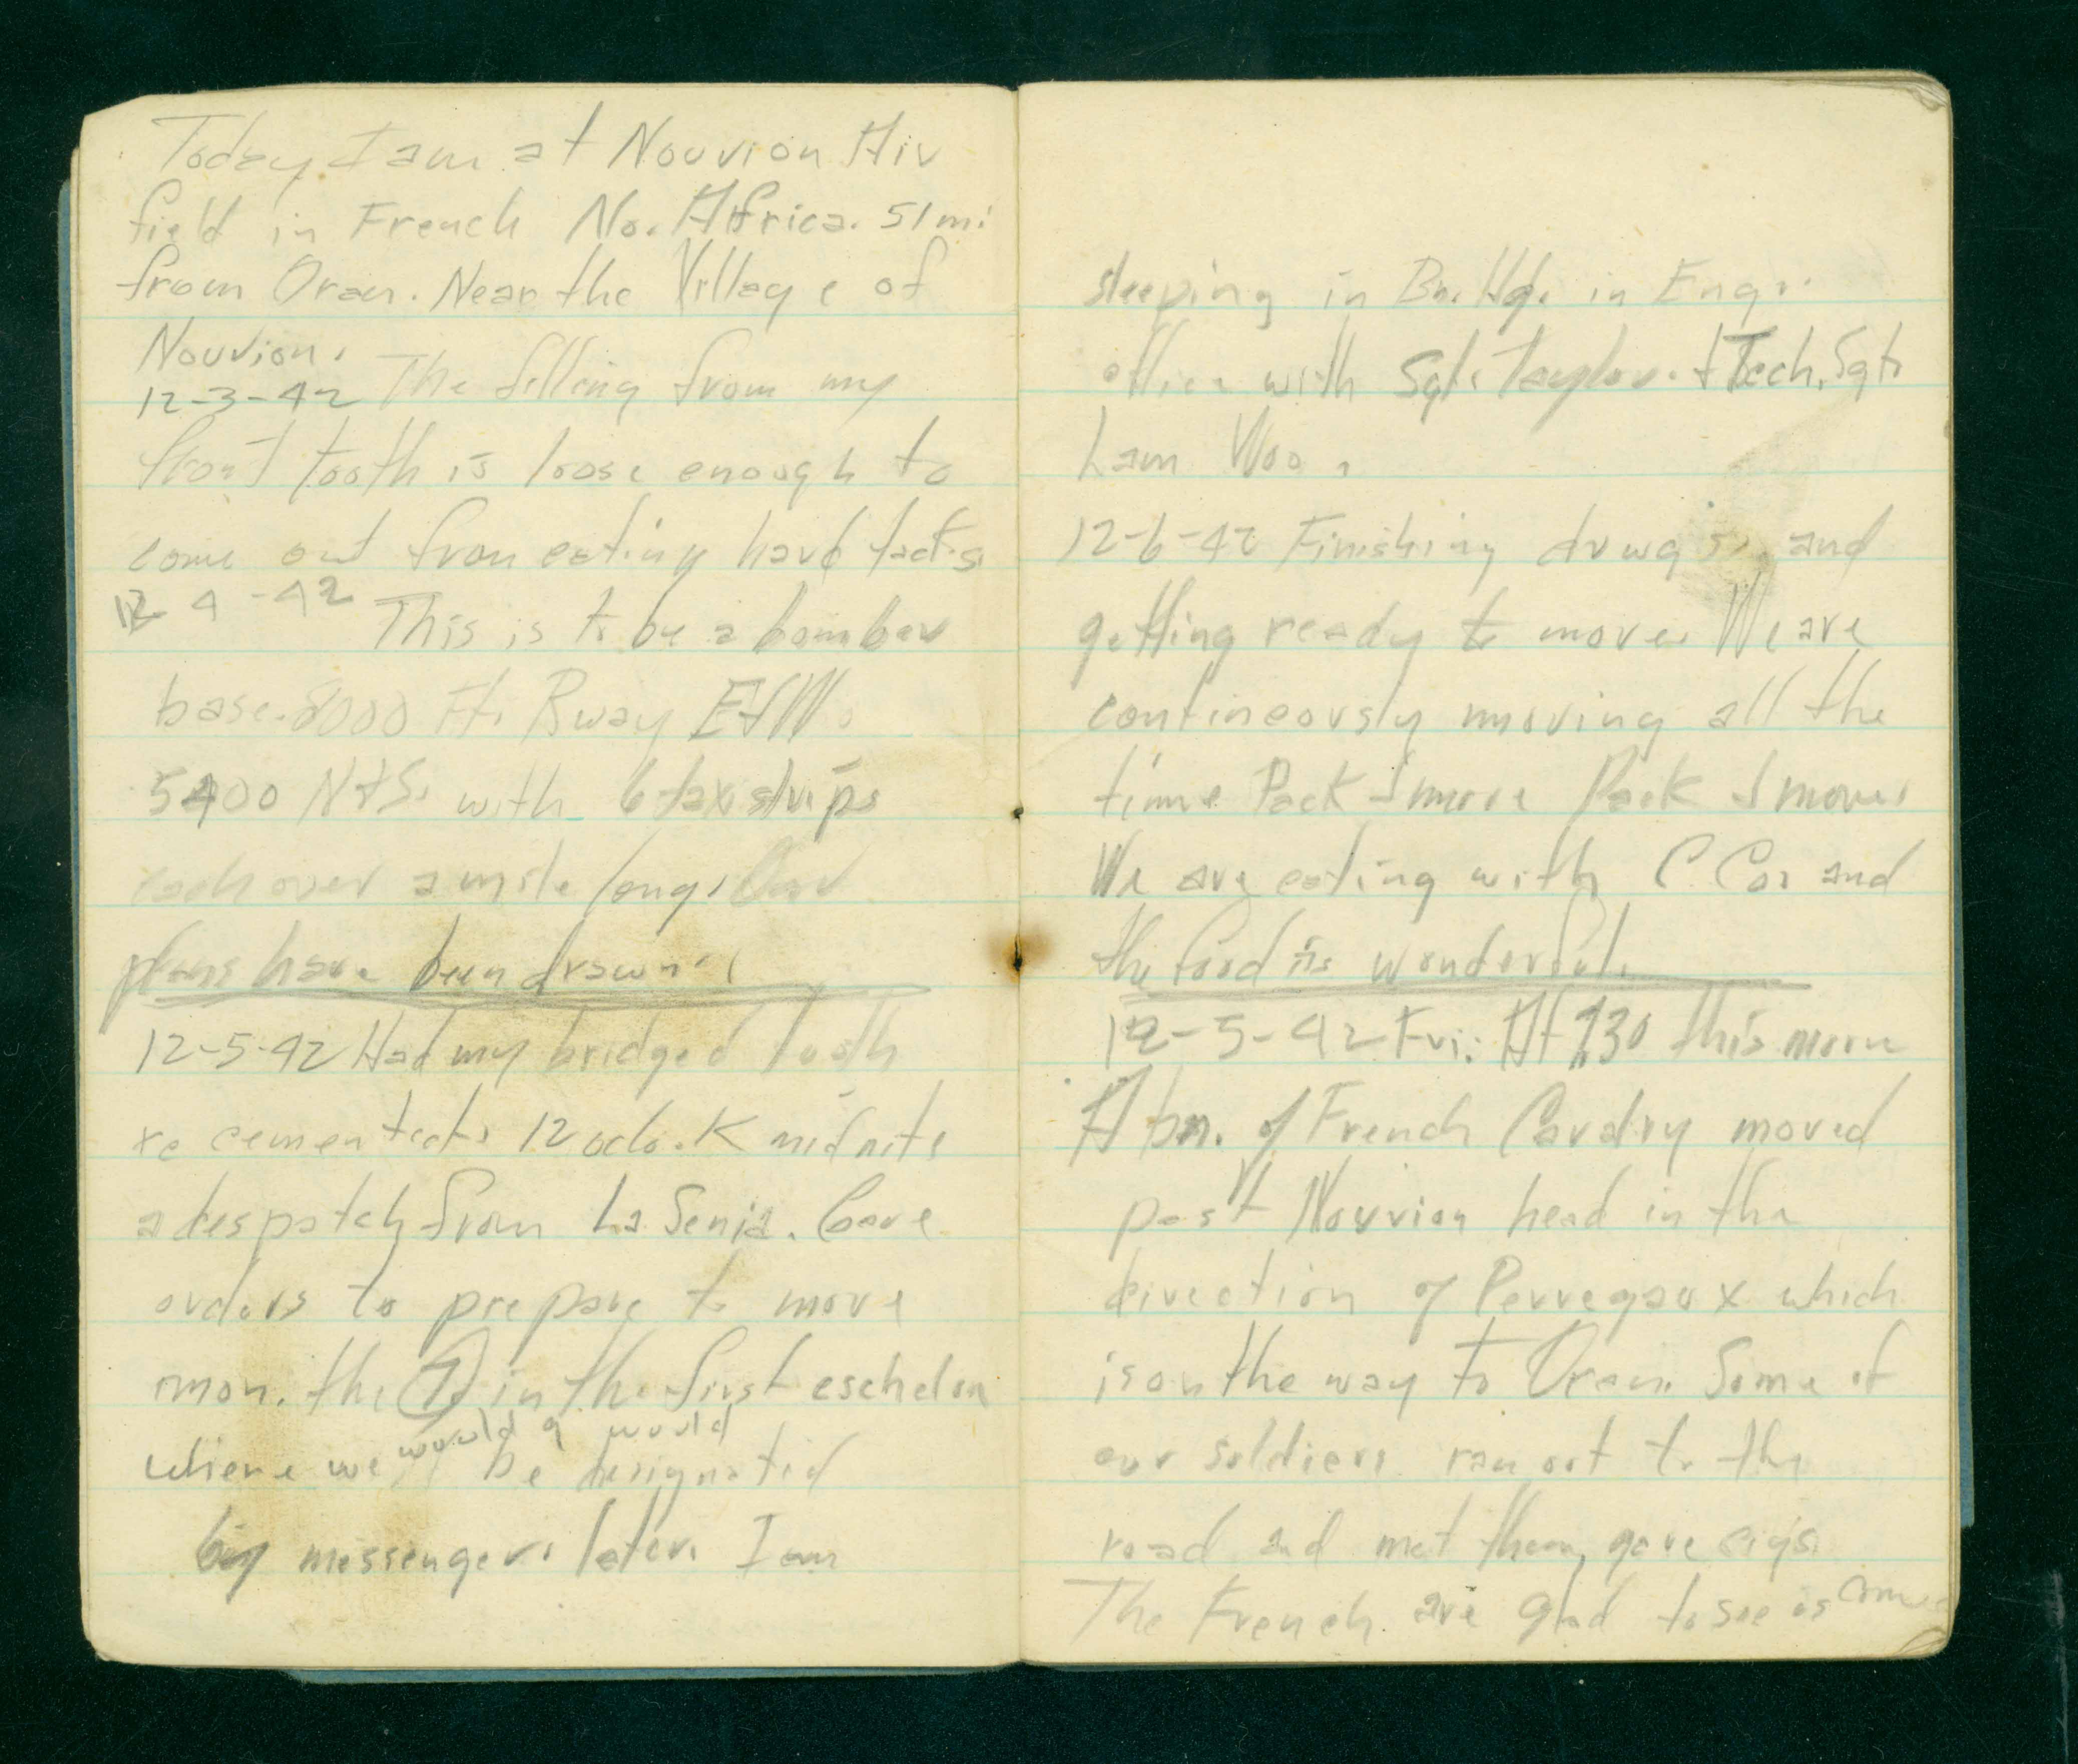 Today I am at Nouvion Air
field in French No. Africa. 51 mi
from Oran. Near the Village of
Nouvion.
12-3-42 The filling from my
front tooth is loose enough to
come out from eating hard tacks.
12-4-42 This is to be a bomber
base. 8000 Ft. Rway E&W.
5400 N&S. with 6 tax strips
each over a mile long. Our
plans have been drawn.
12-5-42 Had my bridged Tooth
re cemented. 12 oclo.K midnite
a despatch from La Senia. Gave
orders to prepare to move
mon. the 7 in the first eschelon
would would
where we be designated
by messenger. later. I am
sleeping in Bn. Hq. in Engr.
office with Sgt. Taylor. & Tech. Sgt.
Lam Woo.
12-6-42 Finishing drwgs. and
getting ready to move. We are
contineously moving all the
time Pack & move Pack & move.
We are eating with C Co. and
the food is wonderful.
12-5-42 Fri: At 930 this morn
A bn. of French Cavalry moved
past Nouvion head in the
direction of Perregaux which
is on the way to Oran. Some of
our soldiers ran out to the
road and met them, gave cigs.
The French are glad to see us